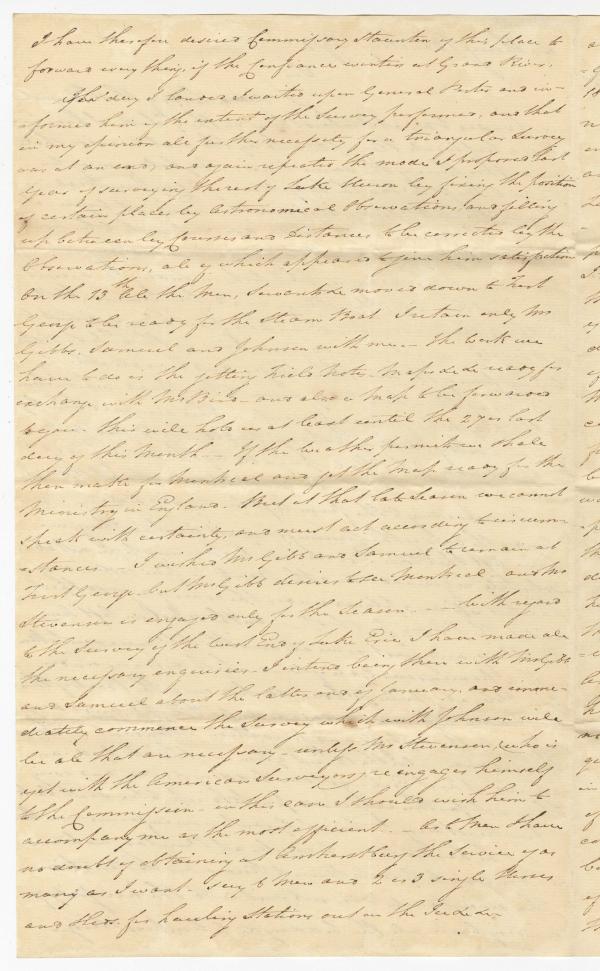 I have therefore desired Commissary Staunton of this place to
forward every thing, if the Confiance winters at Grand River.
The day I landed I waited upon General Porter and in-
-formed him of the extent of the Survey performed, and that
in my opinion all further necessity for a triangular Survey
was at an end; and again repeated the mode I proposed last
Year of surveying the rest of Lake Huron by fixing the position
of certain places by Astronomical Observations, and filling
up between by Courses and Distances to be corrected by the
Observations, all of which appeared to give him satisfaction
On the 13th all the Men, Servants &c moved down to Fort
George to be ready for the Steam Boat I retain only Mr
Gibbs, Samuel and Johnson with me - the work we
have to do is the getting Field Note-Maps &c &c ready for
exchange with Mr Bird - and also a Map to be forwarded
to you. this will hold us at least until the 27 or last
day of this Month - If the weather permits we shall
then make for Montreal and get the Map ready for the
Ministry in England. But at that late Season we cannot
speak with certainty, and must act according to circum-
-stances - I wished Mr Gibb and Samuel to remain at
Fort George but Mr Gibb desires to see Montreal and Mr
Stevenson is engaged only for the Season. -- With regard
to the Survey of the West End of Lake Erie I have made all
the necessary enquiries - I intend being there with Mr Gibb
and Samuel about the latter end of January, and imme-
diately commence the Survey which with Johnson will
be all that are necessary - unless Mr Stevenson, (who is
yet with the American Surveyors) re engages himself
to the Commission - in this case I should wish him to
accompany me as the most efficient. -- As to Men I have
no doubt of obtaining at Amherstburg the Service of as
many as I want - say 6 Men and 2 or 3 single Horses
and Sleds for hauling Stations out on the Ice &c &c -